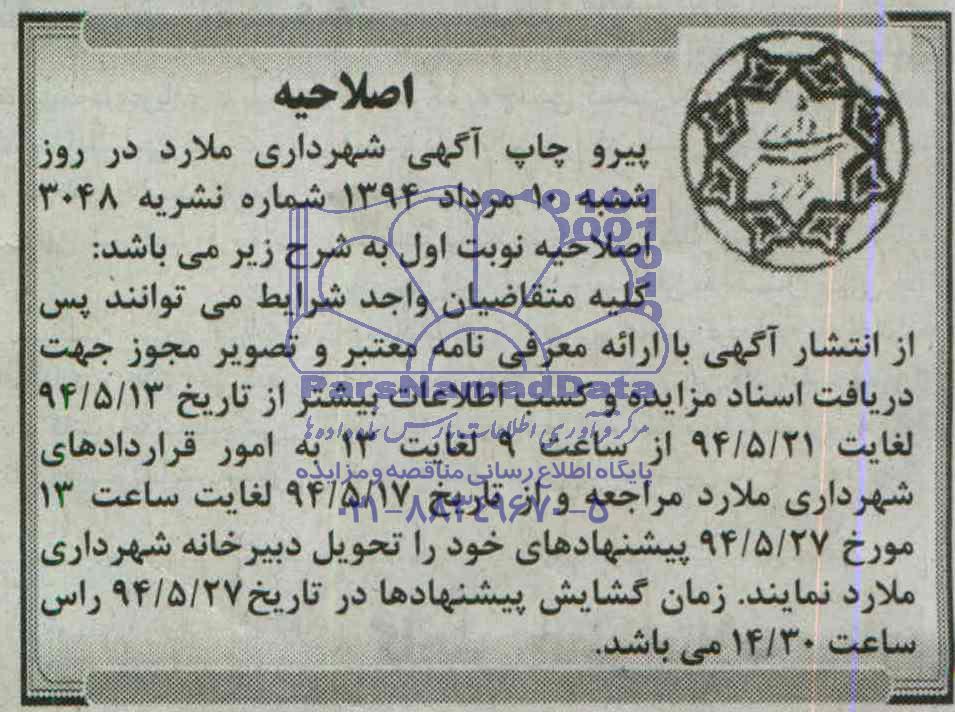 اصلاحیه
پیرو چاپ آگهی شهرداری ملارد در روز
شنبه ۱۰ مرداد ۱۳۹۴ شماره نشریه ۳۰۴۸
اصلاحیه نوبت اول به شرح زیر می باشد:
کلیه متقاضیان واجد شرایط می توانند پس
از انتشار آگهی با ارائه معرفی نامه معتبر و تصویر مجوز جهت
دریافت اسناد مزایده و کسب اطلاعات بیشتر از تاریخ ۹۴/۵/۱۳
لغایت ۹۴/۵/۲۱ از ساعت ۹ لغایت ۱۳ به امور قراردادهای
شهرداری ملارد مراجعه و از تاریخ ۹۴/۵/۱۷ لغایت ساعت ۱۳
مورخ ۹۴/۵/۲۷ پیشنهادهای خود را تحویل دبیرخانه شهرداری
ملارد نمایند. زمان گشایش پیشنهادها در تاریخ۹۴/۵/۲۷ راس
ساعت ۱۴/۳۰ می باشد.
ParsNamadData
مرکز فرآوری اطلاعات پارس نماد داده ها
پایگاه اطلاع رسانی مناقصه و مزایده
۰۲۱-۸۸۳۴۹۶۷۰-۵